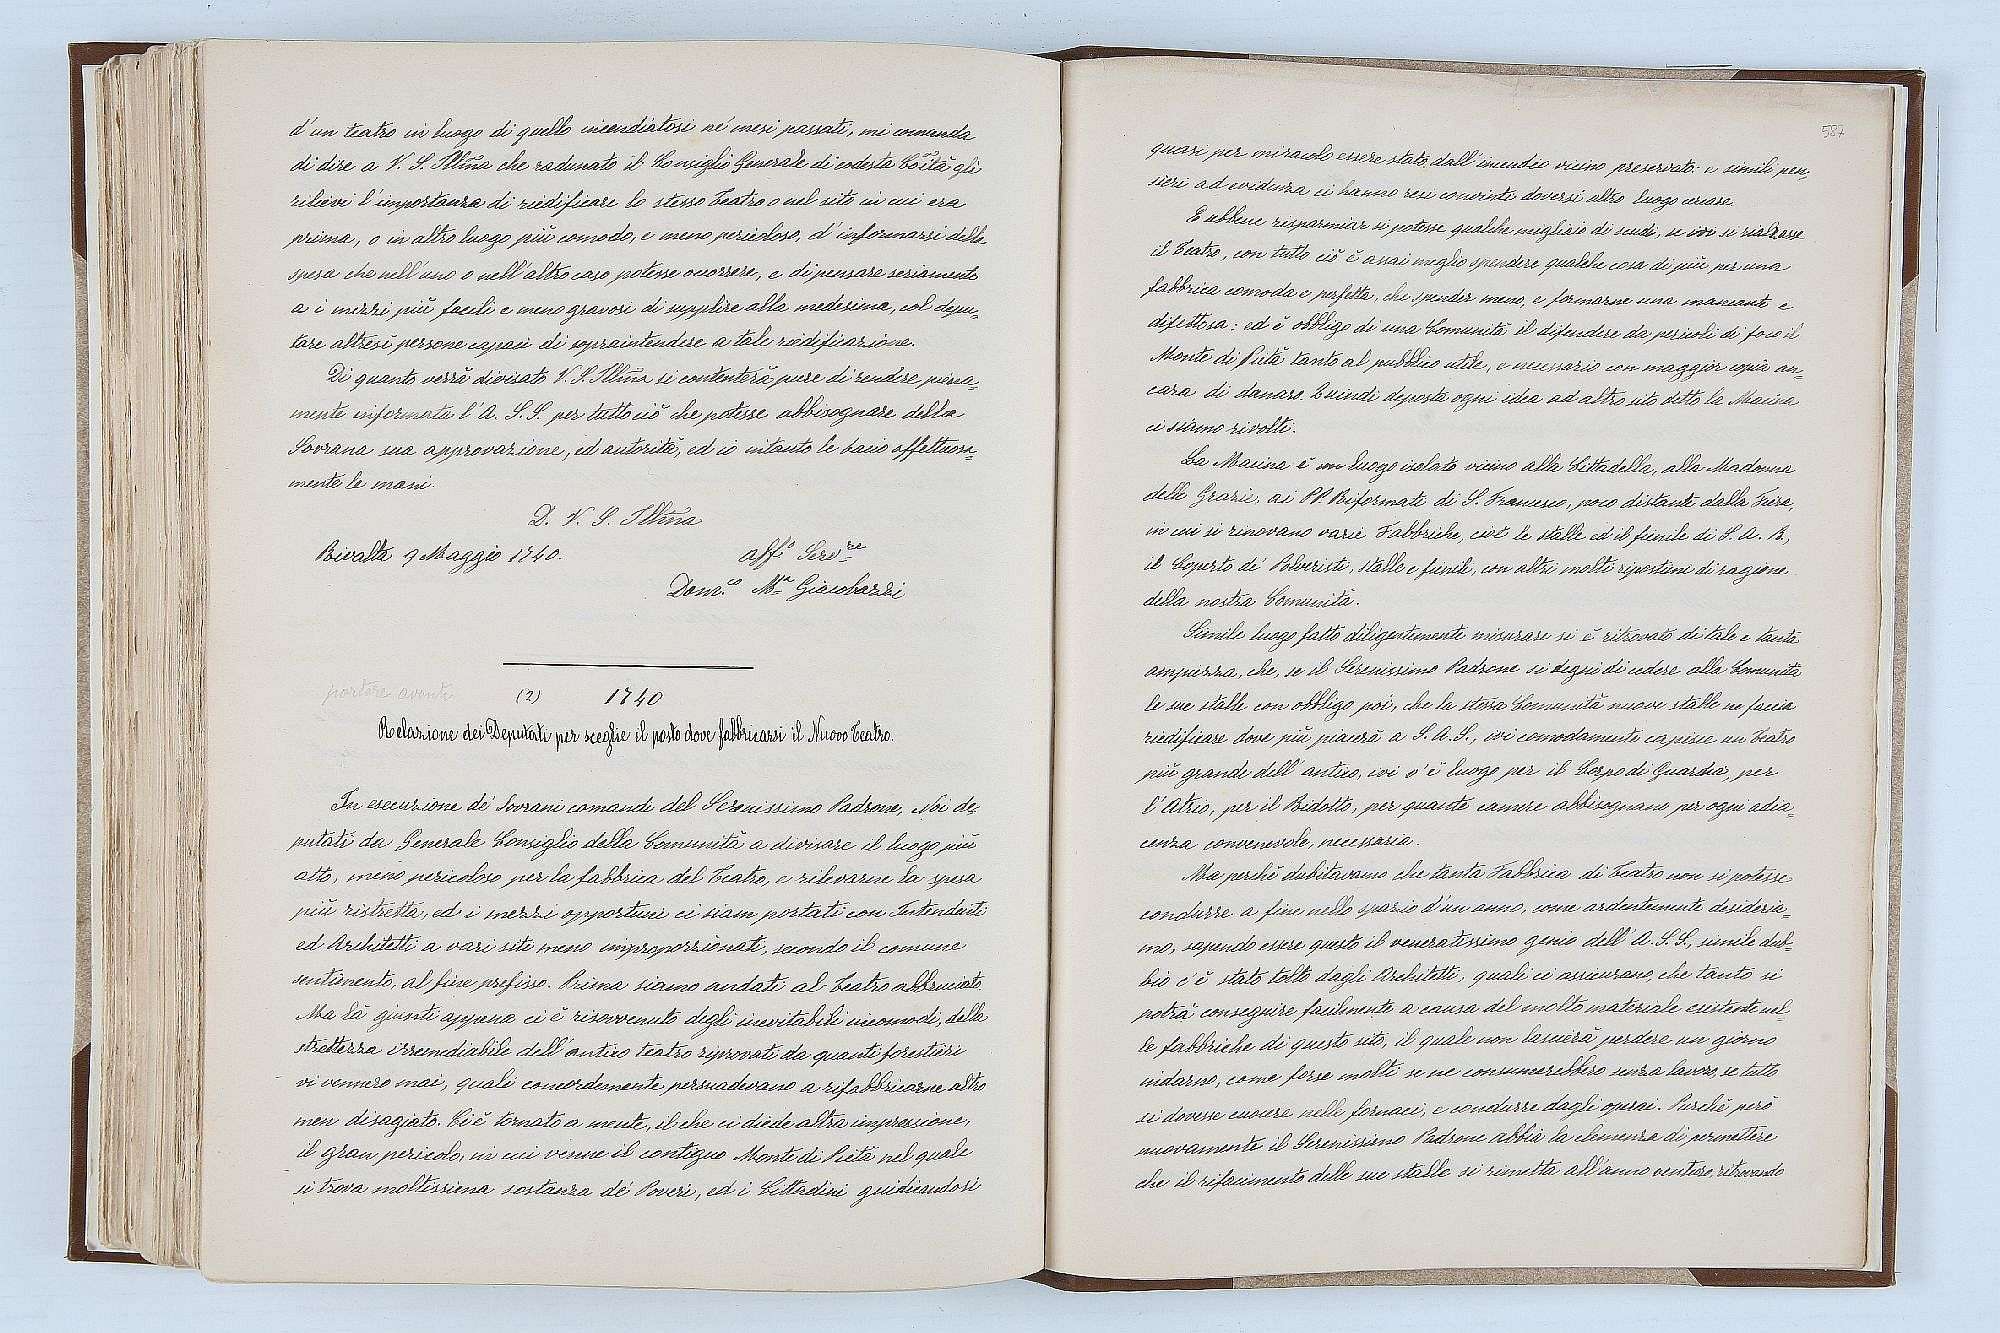 d'un teatro in luogo di quello incendiatosi ne' mesi passati, mi comanda
di dire a V. S. Illm̃a che radunato il Consiglio Generale di codesta Co͞ità gli
rilievi l'importanza di riedificare lo stesso Teatro o nel sito in cui era
prima, o in altro luogo più comodo, e meno pericoloso, d'informarsi della
spesa che nell'uno o nell'altro caso potesse occorrere, e di pensare seriamente
a i mezzi più facili e meno gravosi di supplire alla medesima, col depu-
tare altresì persone capaci di sopraintendere a tale riedificazione.
Di quanto verrà divisato V. S. Illm̃a si contenterà pure di rendere piena-
mente informata l'A. S. S. per tutto ciò che potesse abbisognare della
Sovrana sua approvazione, ed autorità, ed io intanto le bacio affettuosa-
mente le mani
D. V. S. Illm̃a
Rivalta 9 Maggio 1740.
affo Servre
Domco Ma Giacobazzi
portare avanti
(2) 1740
Relazione dei Deputati per sceglie il posto dove fabbricarsi il Nuovo Teatro.
In esecuzione de' Sovrani comandi del Serenissimo Padrone, Noi de-
putati da Generale Consiglio della Comunità a divisare il luogo più
atto, meno pericoloso per la fabbrica del Teatro, e rilevarne la spesa
più ristretta, ed i mezzi opportuni ci siam portati con Intendenti
ed Architetti a vari siti meno improporzionati, secondo il comune
sentimento, al fine prefisso. Prima siamo andati al Teatro abbruciato.
Ma là giunti appena ci è risovvenuto degli inevitabili incomodi, della
strettezza irremediabile dell'antico teatro riprovati da quanti forestieri
vi vennero mai, quali concordemente persuadevano a rifabbricarne altro
men disagiato. Ci è tornato a mente, il che ci diede altra impressione,
il gran pericolo, in cui venne il contiguo Monte di Pietà nel quale
si trova moltissima sostanza de' Poveri, ed i Cittadini giudicandosi
587
quasi per miracolo essere stato dall'incendio vicino preservato: e simili pen-
sieri ad evidenza ci hanno resi convinti doversi altro luogo cercare.
E abbene risparmiar si potesse qualche migliaio di scudi, se ivi si rialzasse
il Teatro, con tutto ciò è assai meglio spendere qualche cosa di più per una
fabbrica comoda e perfetta, che spender meno, e formarne una mancante e
difettosa: ed è obbligo di una Comunità il difendere da pericoli di foco il
Monte di Pietà tanto al pubblico utile, e necessario con maggior copia an-
cora di danaro. Quindi deposta ogni idea ad altro sito detto la Macina
ci siamo rivolti.
La Macina è un luogo isolato vicino alla Cittadella, alla Madonna
delle Grazie, ai PP. Riformati di S. Francesco, poco distante dalla Fiera,
in cui si rinovano varie Fabbriche, cioè le stalle ed il fienile di S. A. R.,
il Coperto de' Polveristi, stalle e fienile, con altri molti riportimi di ragione
della nostra Comunità.
Simile luogo fatto diligentemente misurare si è ritrovato di tale e tanta
ampiezza, che, se il Serenissimo Padrone si degni di cedere alla Comunità
le sue stalle con obbligo poi, che la stessa Comunità nuove stalle ne faccia
riedificare dove più piacerà a S. A. S., ivi comodamente capisce un Teatro
più grande dell'antico, ivi v'è luogo per il Corpo di Guardia, per
l'Atrio, per il Ridotto, per quante camere abbisognano per ogni adia-
cenza convenevole, necessaria.
Ma perchè dubitavamo che tanta Fabbrica di Teatro non si potesse
condurre a fine nello spazio d'un anno, come ardentemente desideria-
mo, sapendo essere questo il veneratissimo genio dell'A. S. S., simile dub-
bio c'è stato tolto dagli Architetti, quali ci assicurano, che tanto si
potrà conseguire facilmente a causa del molto materiale esistente nel-
le fabbriche di questo sito, il quale non lascierà perdere un giorno
indarno, come forse molti se ne consumerebbero senza lavoro, se tutto
si dovesse cuocere nelle fornaci, e condurre dagli operai. Purchè però
nuovamente il Serenissimo Padrone abbia la clemenza di permettere
che il rifacimento delle sue stalle si rimetta all'anno venturo, ritrovando